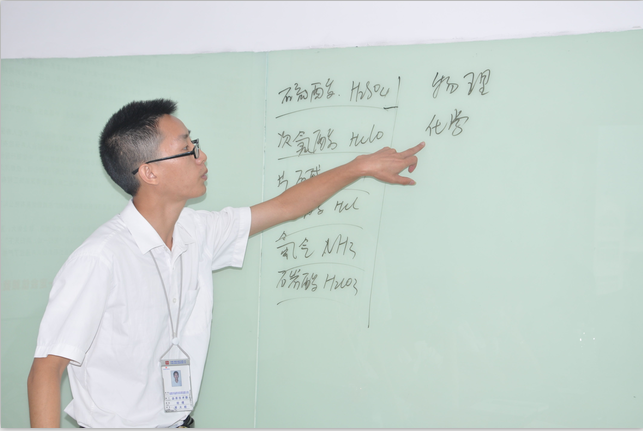 硫酸. H2SO4
次氯酸 HClO
盐酸 HCl
氨气 NH3
碳酸 H2CO3
物理
化学